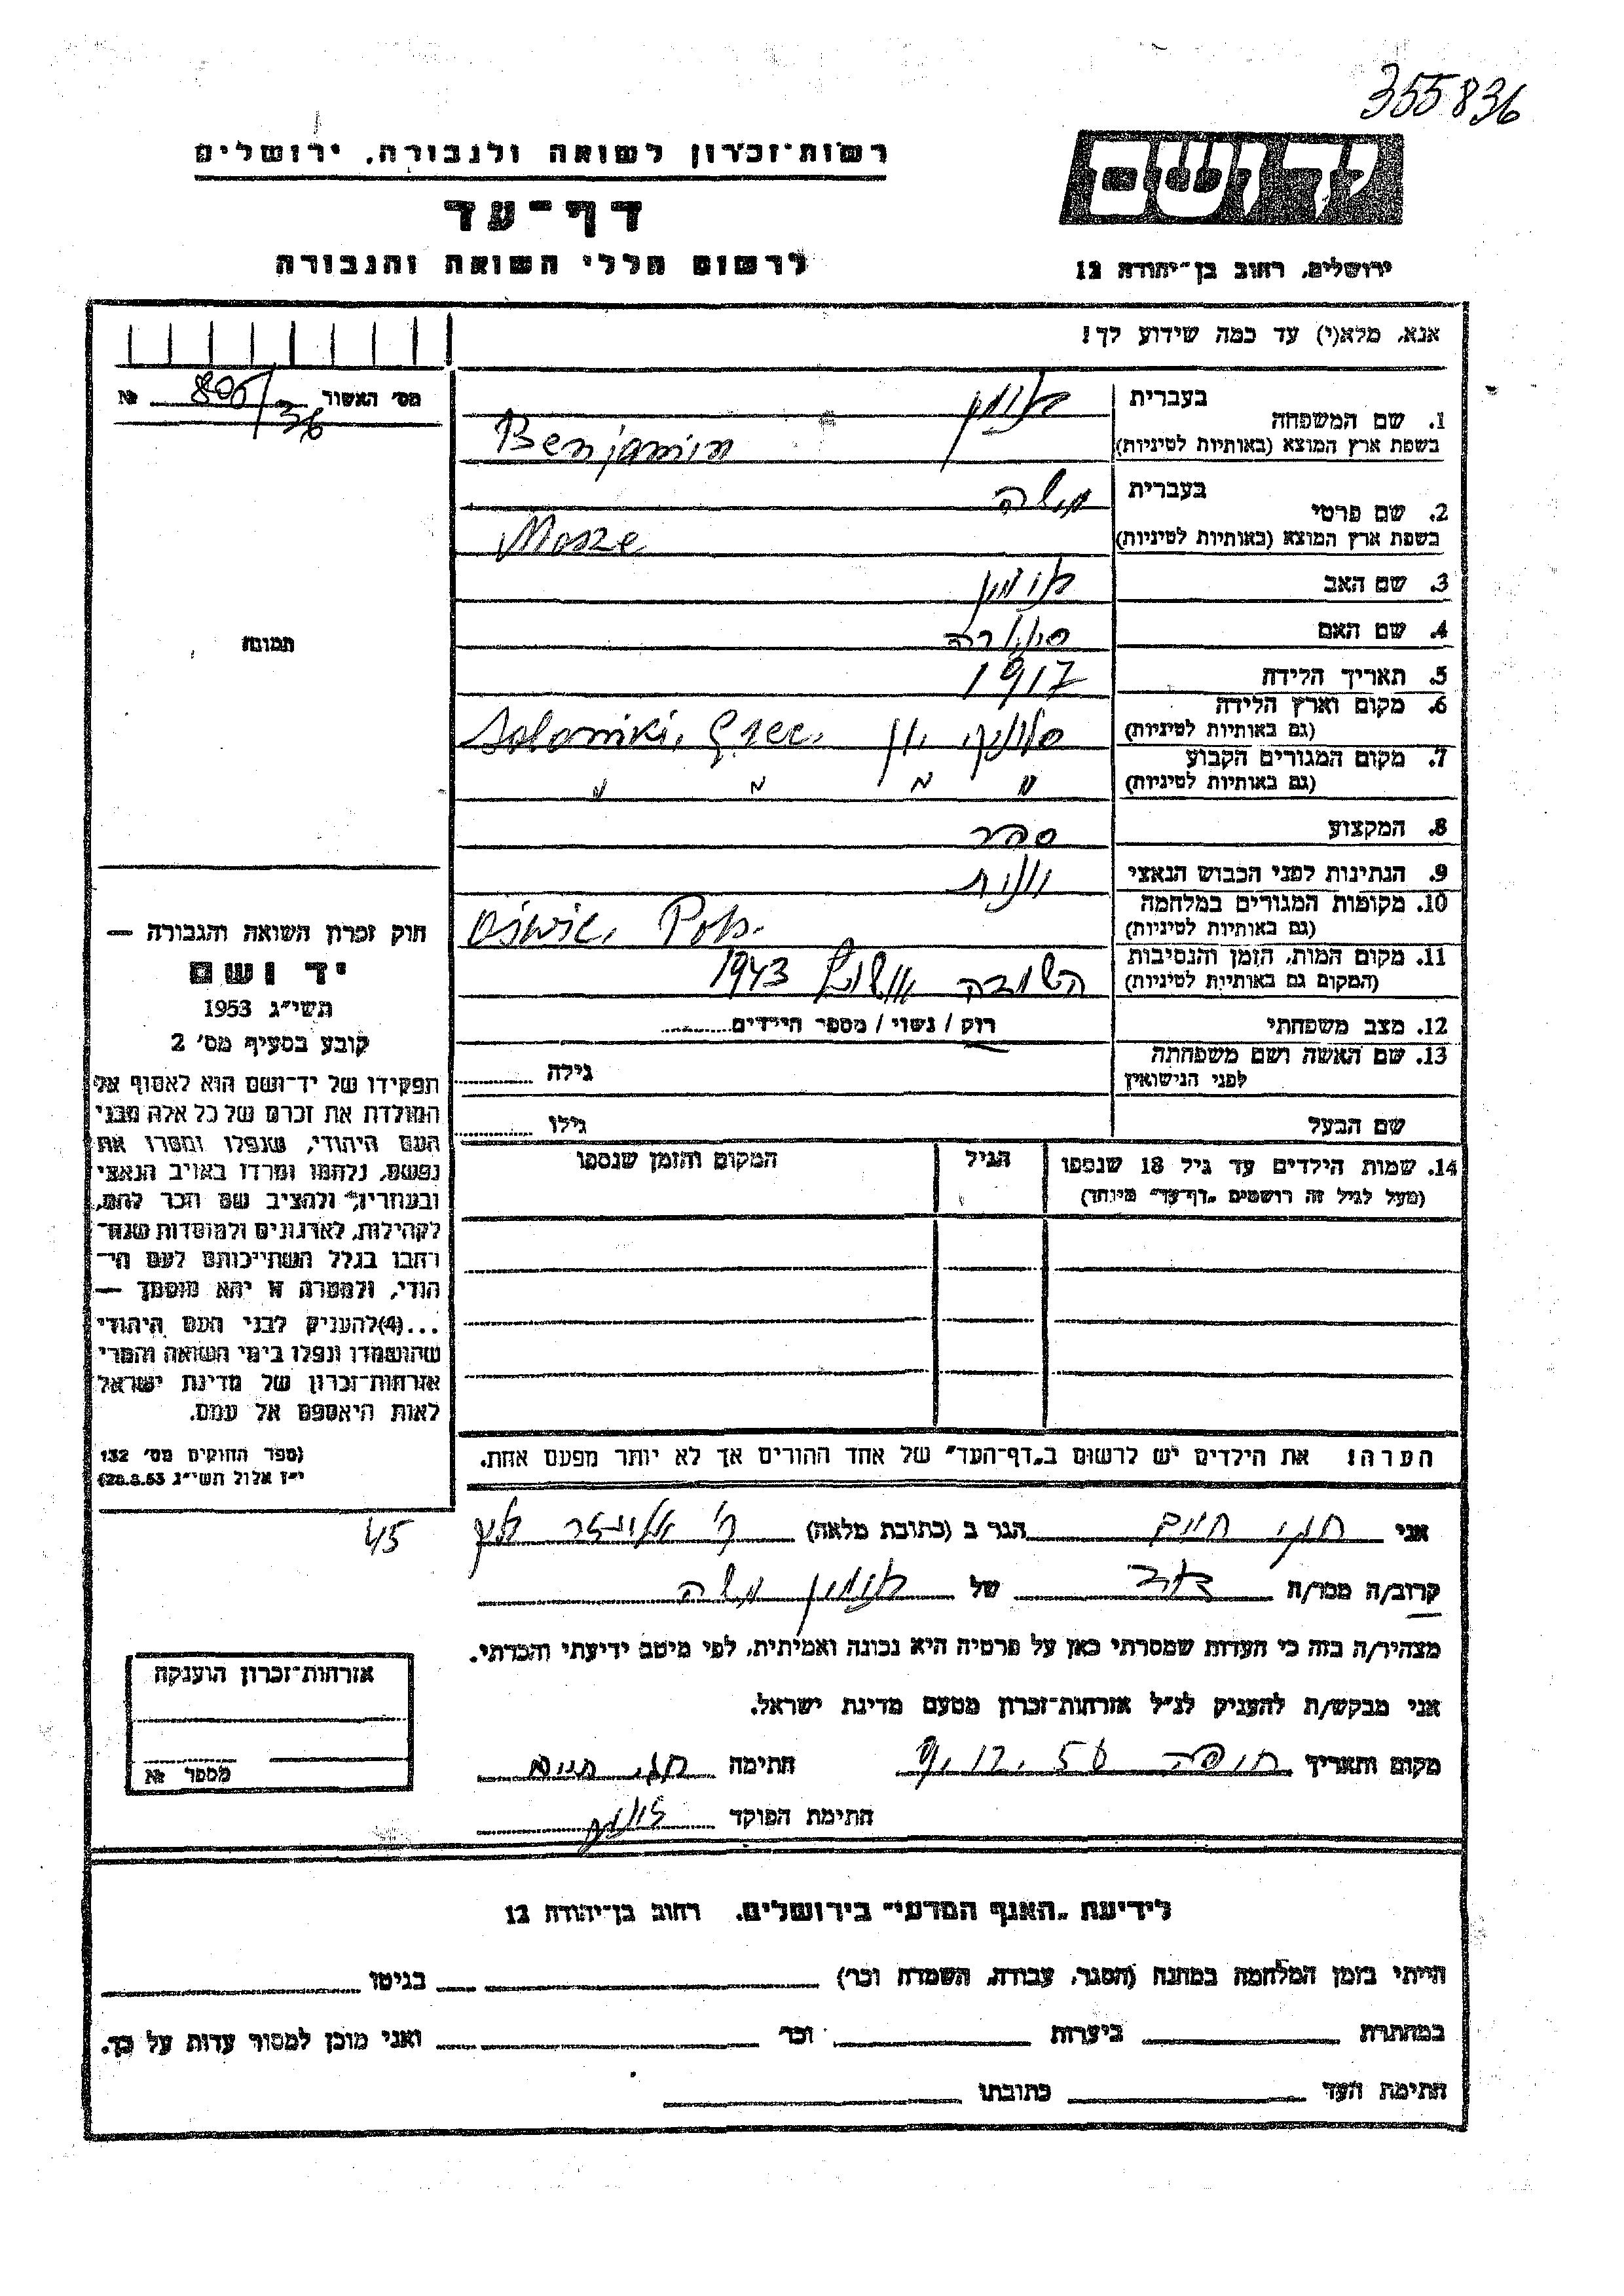 355836
רשות־זכרון לשואה ולגבורה, ירושלים
דף־עד
לרשום חללי השואה והגבורה
יד ושם
ירושלים, רחוב בן־יהודה 12
אנא, מלא(י) עד כמה שידוע לך!
מס׳ האשור 806/36 №
1. שם המשפחה
בעברית בנימין
בשפת ארץ המוצא (באותיות לטיניות) Benjamin
2. שם פרטי
בעברית משה
בשפת ארץ המוצא (באותיות לטיניות) Mosze
3. שם האב בנימין
4. שם האם
5. תאריך הלידה 1917
6. מקום וארץ הלידה (גם באותיות לטיניות) סלוניקי יון Saloniki, Grec.
7. מקום המגורים הקבוע (גם באותיות לטיניות) " " " "
8. המקצוע ספר
9. הנתינות לפני הכבוש הנאצי יונית
10. מקומות המגורים במלחמה (גם באותיות לטיניות) Oświe. Pol.
11. מקום המות, הזמן והנסיבות (המקום גם באותיות לטיניות) הושמד 1943
12. מצב משפחתי רוק / נשוי / מספר הילדים
13. שם האשה ושם משפחתה לפני הנישואין גילה
שם הבעל גילו
14. שמות הילדים עד גיל 18 שנספו הגיל המקום והזמן שנספו
(מעל לגיל זה רושמים „דף־עד״ מיוחד)
הערה: את הילדים יש לרשום ב„דף־העד״ של אחד ההורים אך לא יותר מפעם אחת.
תמונה
חוק זכרון השואה והגבורה —
יד ושם
תשי״ג 1953
קובע בסעיף מס׳ 2
תפקידו של יד־ושם הוא לאסוף אל
המולדת את זכרם של כל אלה מבני
העם היהודי, שנפלו ומסרו את
נפשם, נלחמו ומרדו באויב הנאצי
ובעוזריו, ולהציב שם וזכר להם,
לקהילות, לארגונים ולמוסדות שנח־
רבו בגלל השתייכותם לעם הי־
הודי, ולמטרה זו יהא מוסמך —
...(4) להעניק לבני העם היהודי
שהושמדו ונפלו בימי השואה והמרי
אזרחות־זכרון של מדינת ישראל
לאות היאספם אל עמם.
(ספר החוקים מס׳ 132
י״ז אלול תשי״ג 28.8.53)
אני חגי חיים הגר ב (כתובת מלאה) ק׳ אליעזר 45
קרוב/ה מכר/ה של בנימין משה
מצהיר/ה בזה כי העדות שמסרתי כאן על פרטיה היא נכונה ואמיתית, לפי מיטב ידיעתי והכרתי.
אני מבקש/ת להעניק לנ״ל אזרחות־זכרון מטעם מדינת ישראל.
מקום ותאריך חיפה 9.12.56 חתימה חגי חיים
חתימת הפוקד
אזרחות־זכרון הוענקה
מספר №
לידיעת „האגף המדעי״ בירושלים, רחוב בן־יהודה 12
הייתי בזמן המלחמה במחנה (הסגר, עבודה, השמדה וכר׳) בגיטו
במחתרת ביערות וכר׳ ואני מוכן למסור עדות על כך.
חתימת העד כתובתו